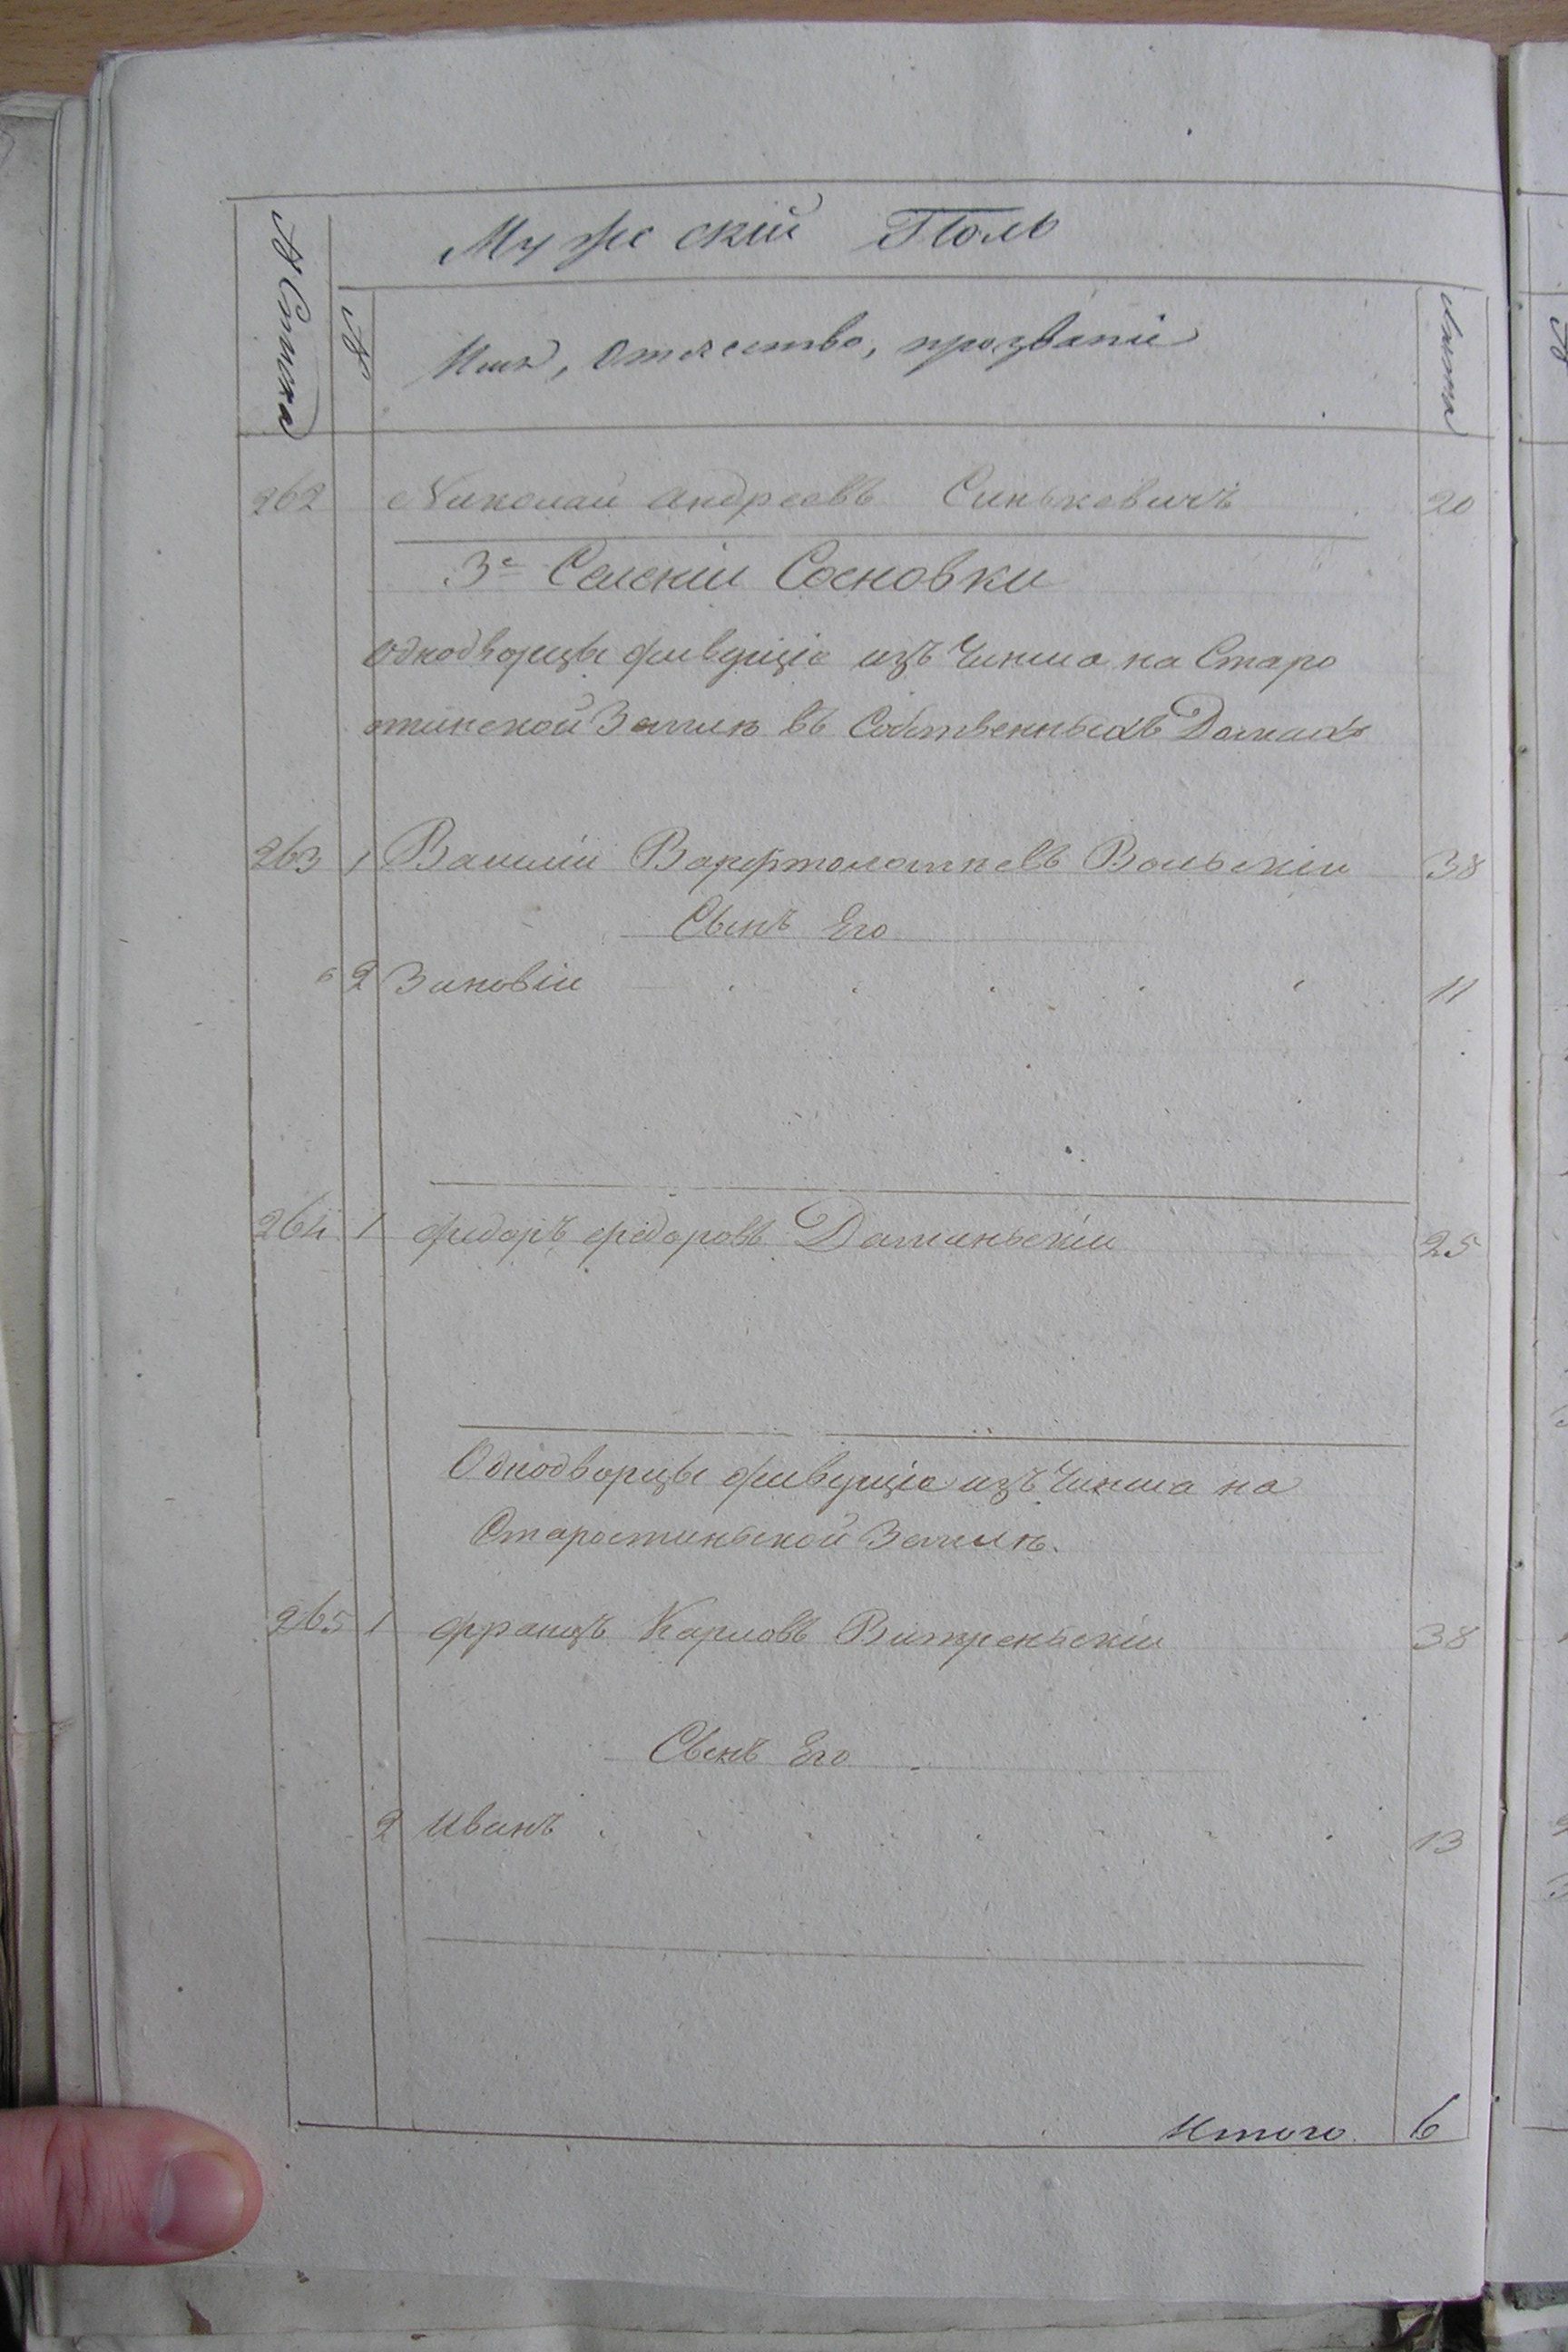 № Списка
Мужеский Полъ
№
Имя, Отечество, прозваніе
Лѣта
262 Николай Андреевъ Синькевичъ 20
3е Селенiи Сосновки
Однодворцы живущіе изъ Чинша на Старо
стинской Землѣ въ Собственныхъ Домахъ
263 1 Василіи Варфтоломѣевъ Вольскіи 38
Сынъ Его
2 Зиновіи 11
264 1 Федоръ Федоровъ Даминьскіи 25
Однодворцы живущіе изъ Чинша на
Старостиньской Землѣ.
265 1 Францъ Карловъ Витреньскіи 38
Сынъ Его
2 Иванъ 13
Итого 6